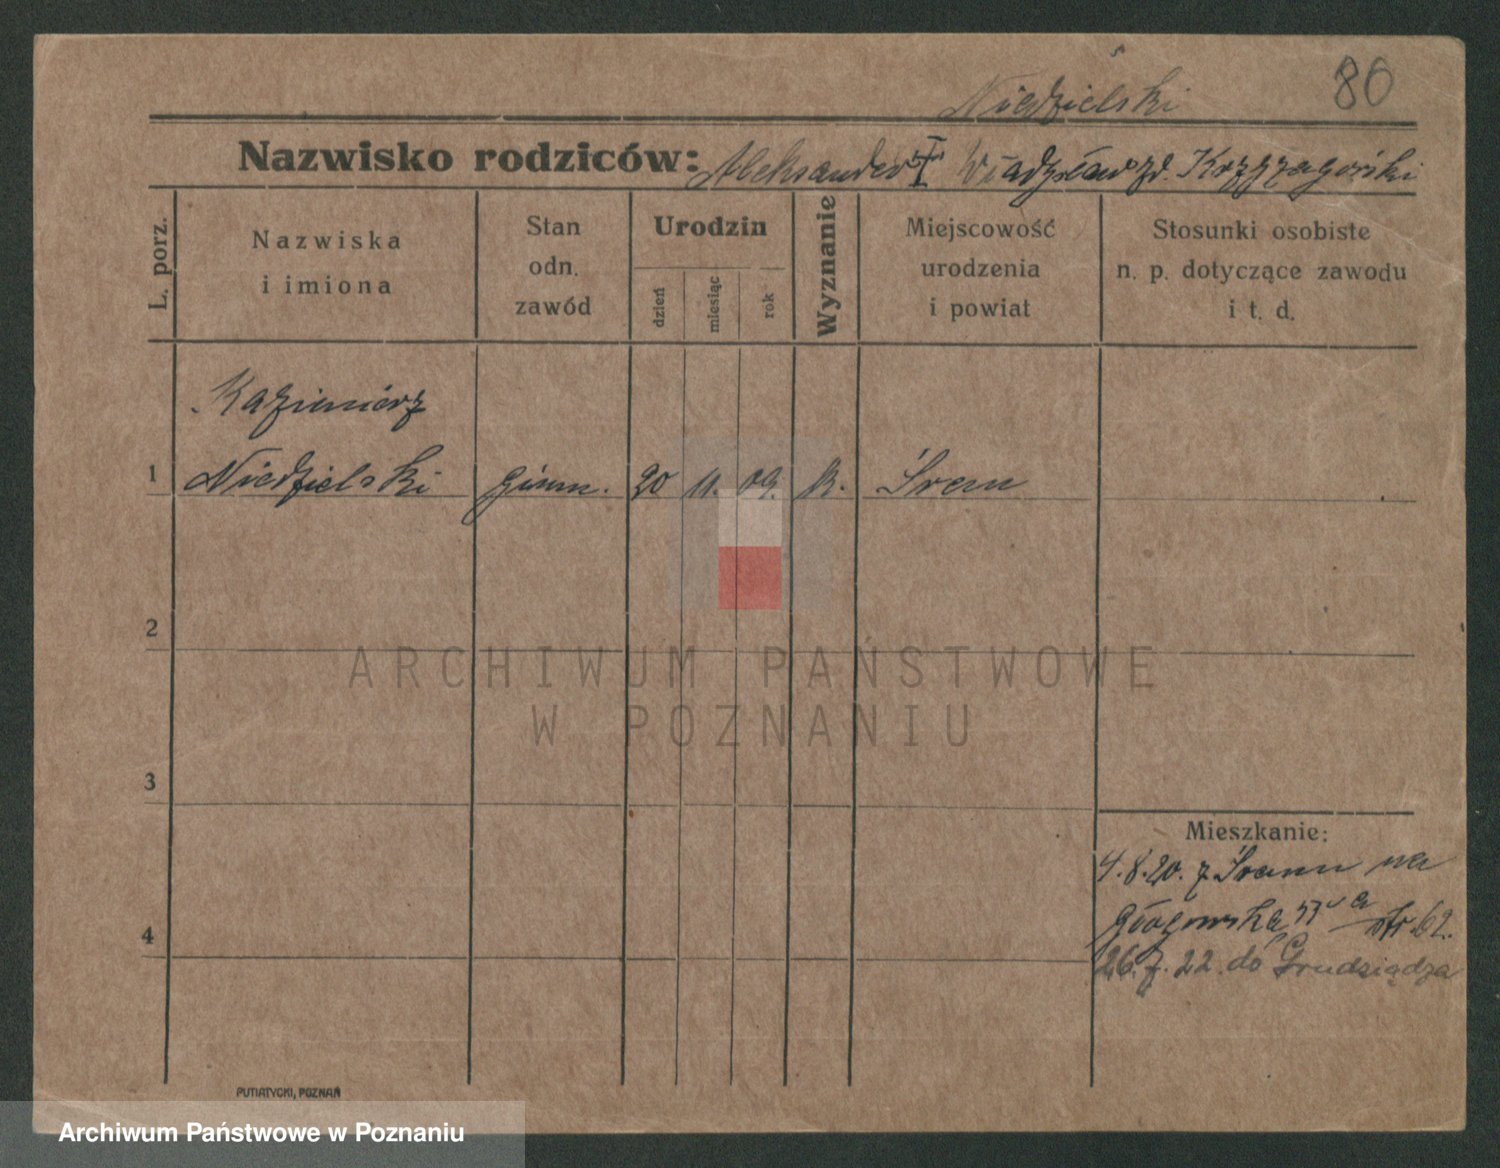 80
Niedzielski
Nazwisko rodziców: Aleksander i Władysława zd. Krzyżagórski
L. porz.
Nazwiska i imiona
Stan odn. zawód
Urodzin
dzień
miesiąc
rok
Wyznanie
Miejscowość urodzenia i powiat
Stosunki osobiste n. p. dotyczące zawodu i t. d.
Kazimierz
1 Niedzielski gimn. 20 11. 09. k. Śrem
2
3
4
Mieszkanie:
4.8.20. z Śremu na
Głogowska str. 62.
26.7.22. do Grudziądza
PUTIATYCKI, POZNAŃ
ARCHIWUM PAŃSTWOWE
W POZNANIU
Archiwum Państwowe w Poznaniu